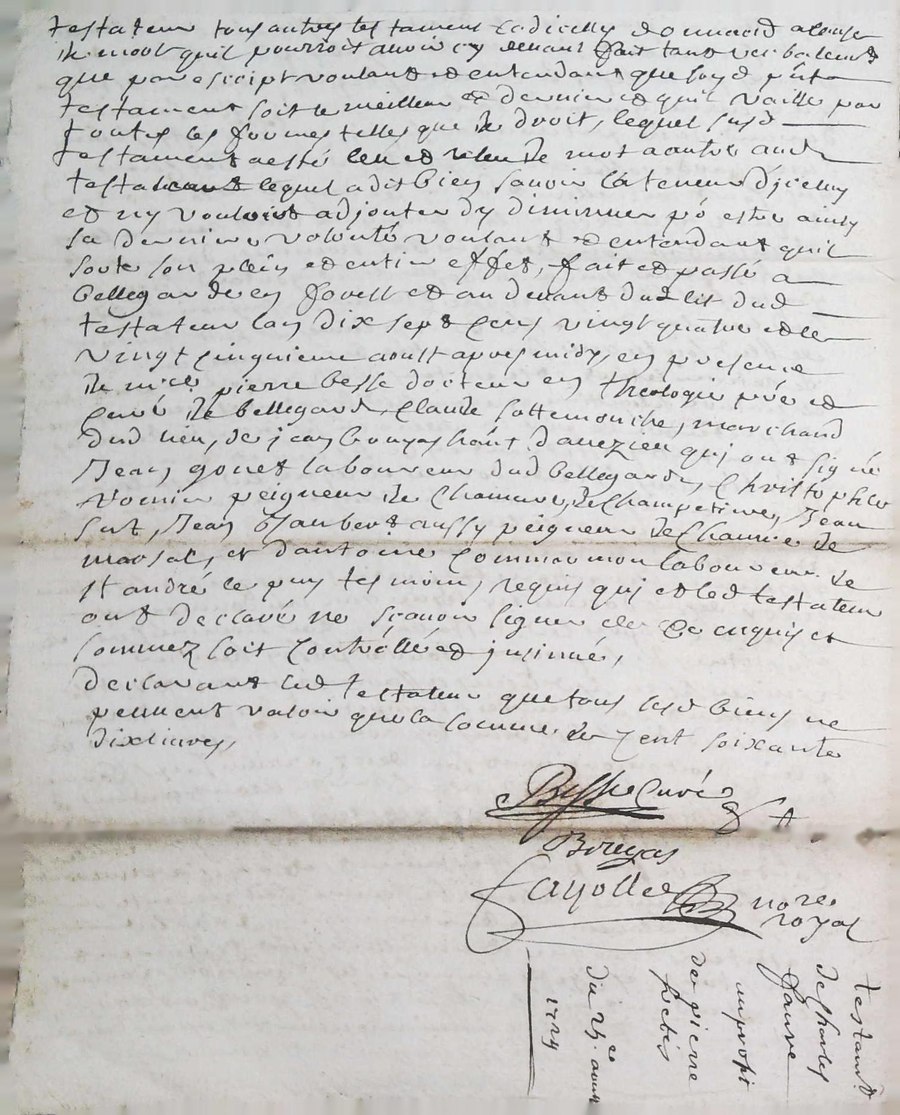 testateur tous autres testament codicelles donnaōns a cause
de mort quil pourroit avoir cy devant fait tant verbalemt
que par escript voulant et entendant que sond pñt
testament soit le meilleur et dernier et quil vaille par
toutes les formes telles que de droit, lequel susd
testament a esté leu et releu de mot a autre aud
testateur lequel a dit bien savoir la teneur dicelluy
et ny vouloir adjouter dy diminuer pō estre ainsy
sa derniere volonté voulant et entendant quil
sorte son plein et entier effet, fait et passé a
bellegarde en forest et au devant dud lit dud
testateur lan dix sept cens vingt quatre et le
vingt cinquieme aoust apres midy, en presence
de mice pierre besse docteur en theologie prē et
curé de bellegarde, Claude sottemouche, marchand
dud lieu, de jean bouyas hānt daveizieu qui ont signé
Jean gonet laboureur dud bellegarde, Christophle
peigneur de chanvre, de Jean
Jean aussy peigneur de chanvre de
marsat, et dantoine laboureur de
st andré le puy tesmoins requis qui et led testateur
ont declaré ne sçavoir signer de ce enquis et
sommez soit controllé et jnsinué,
declarant led testateur que tous sesd biens ne
peuvent valoir que la somme de cent soixante
dix livres,
Besse Curé
Bouyas
fayolle nore
royal
testamt
de Charles
faure
au profit
de pierre
du 25e aoust
1724